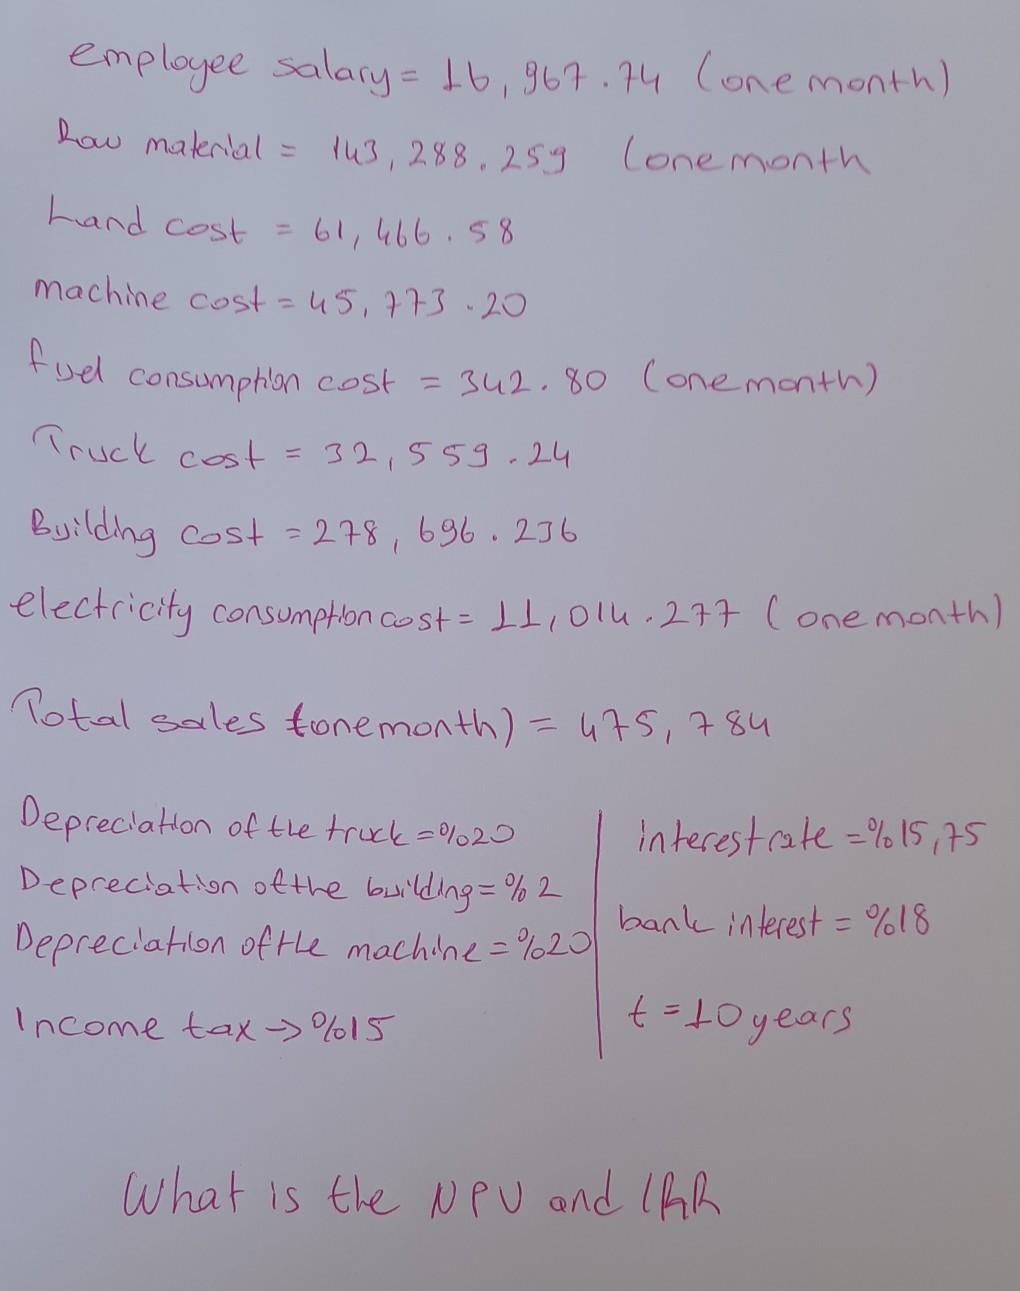 employee salary = 16,967.74 (one month)
Raw material = 143,288.259 (one month
Land cost = 61,466.58
machine cost = 45,773.20
fuel consumption cost = 342.80 (one month)
Truck cost = 32,559.24
Building cost = 278,696.236
electricity consumption cost = 11,014.277 (one month)
Total sales (one month) = 475,784
Depreciation of the truck = %20
Depreciation of the building = % 2
Depreciation of the machine = %20
Income tax → %15
interest rate = %15,75
bank interest = %18
t = 10 years
What is the NPV and IRR